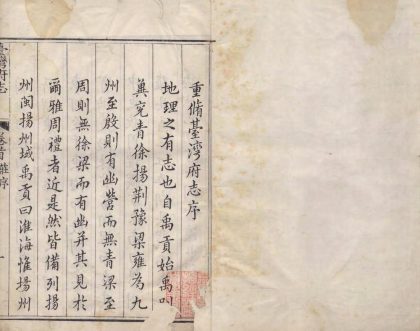 重脩臺灣府志序
地理之有志也自禹貢始禹以
冀兗青徐揚荊豫梁雍為九
州至殷則有幽營而無青梁至
周則無徐梁而有幽并其見於
爾雅周禮者近是然皆備列揚
州閩揚州域禹貢曰淮海惟揚州
臺灣府志 卷首 序 一